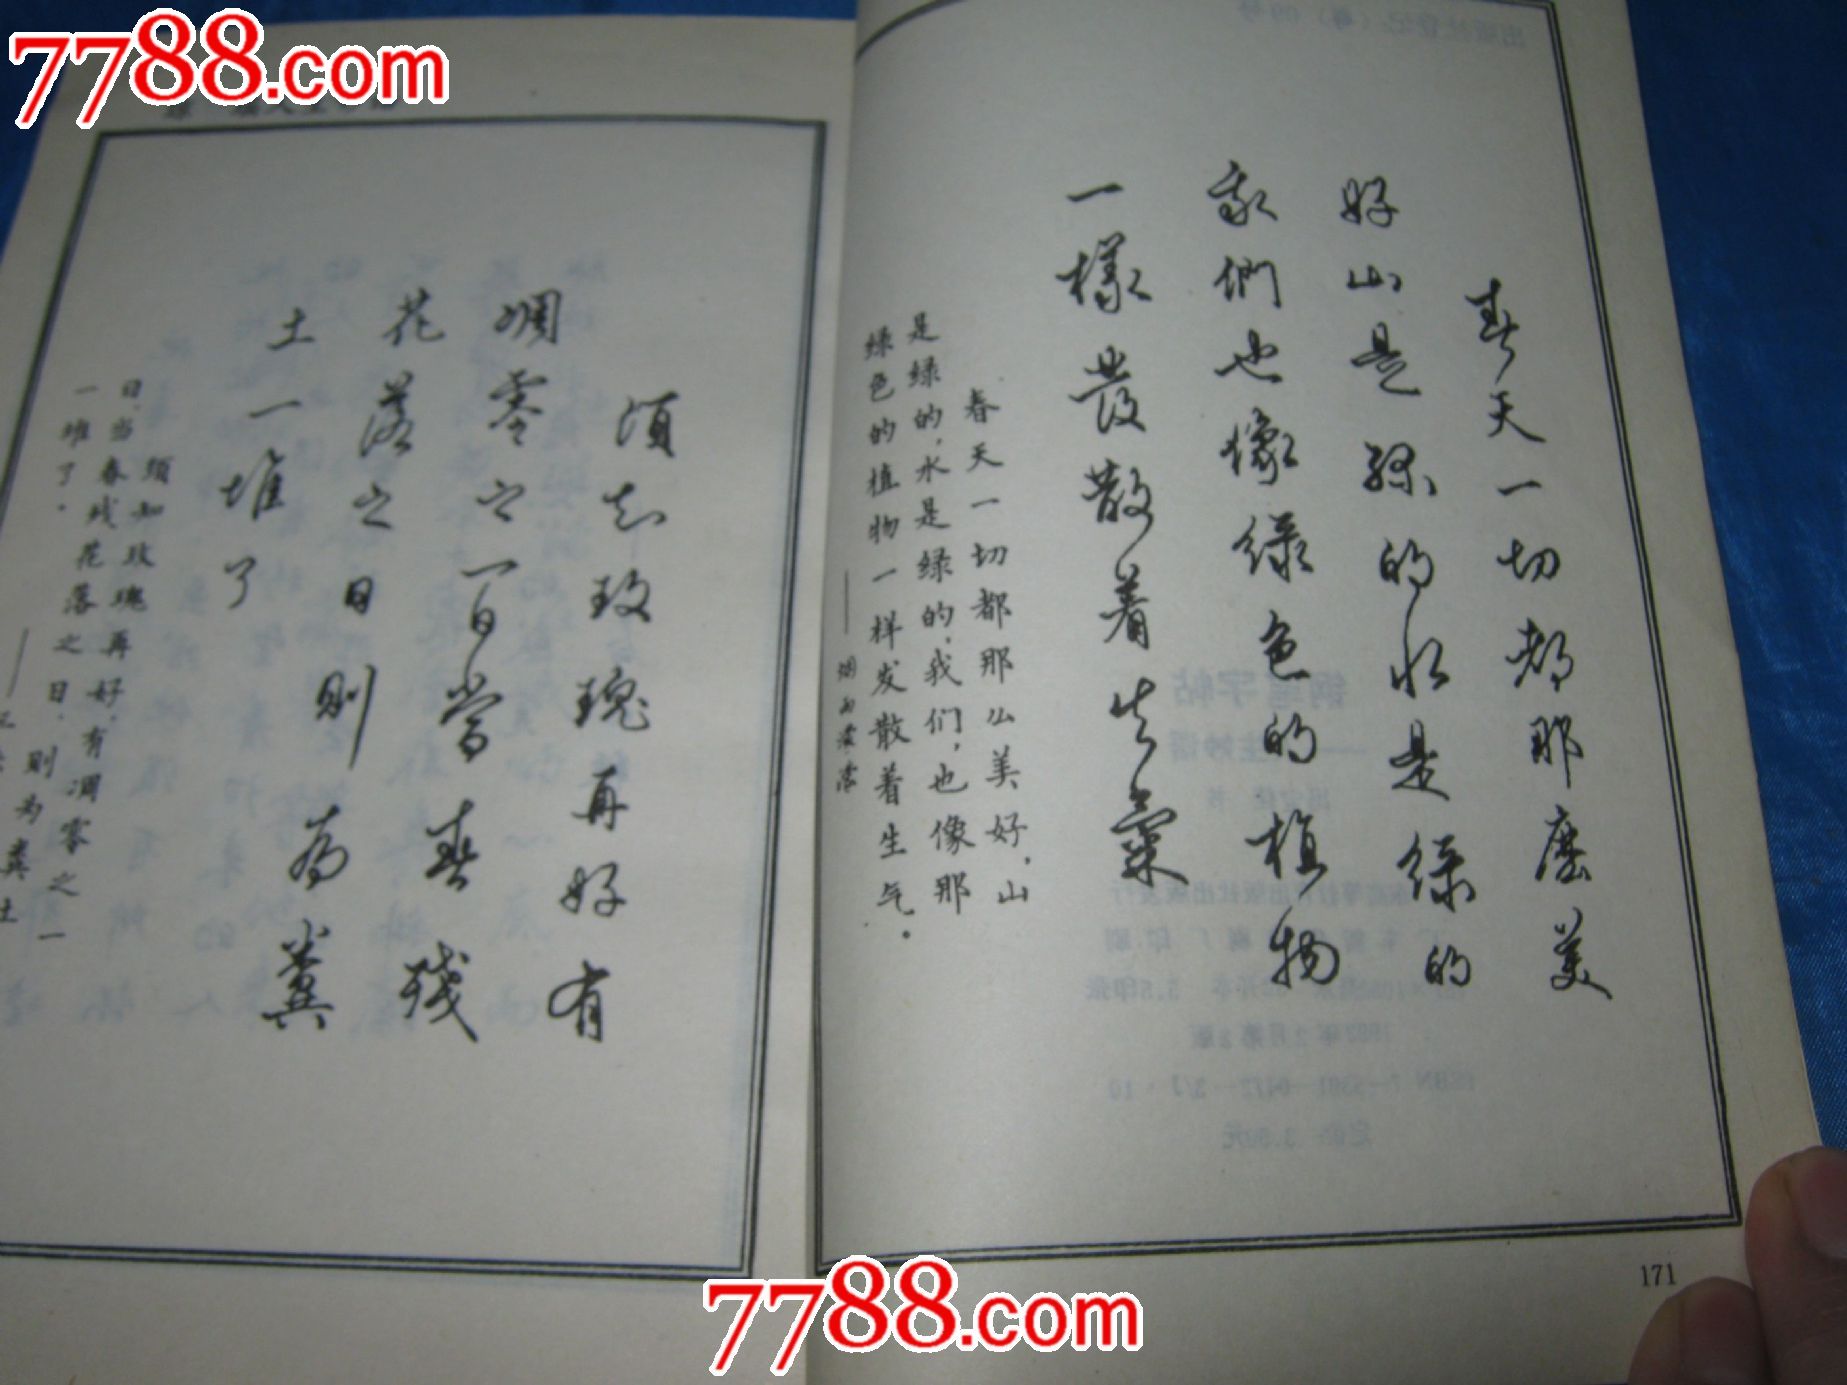 7788.com
须知玫瑰再好有
凋零之一日當春残
花落之日则为糞
土一堆了
须知玫瑰再好，有凋零之一
日，当春残花落之日，则为粪土
一堆了。
春天一切都那麼美
好山是绿的水是绿的
我們也像绿色的植物
一樣發散着生氣
春天一切都那么美好，山
是绿的，水是绿的，我们，也像那
绿色的植物一样发散着生气。
——烟雨濛濛
171
7788.com